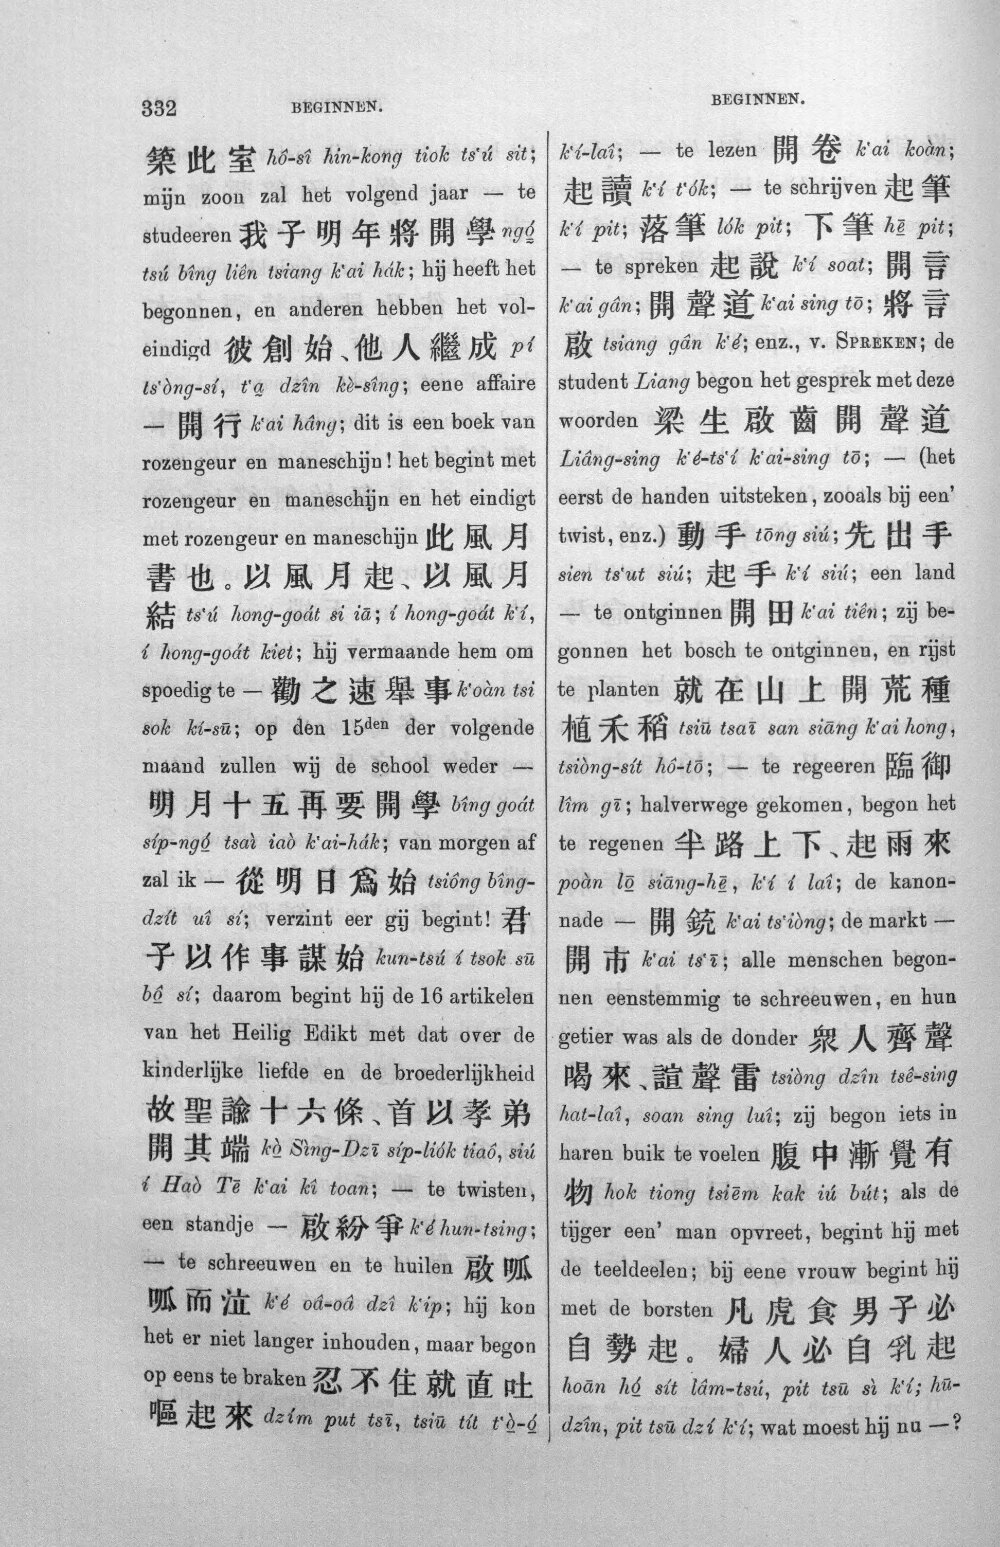 332 BEGINNEN.
築此室 hô-sî hin-kong tiok ts‘ú sit;
mijn zoon zal het volgend jaar — te
studeeren 我子明年將開學 ngó̱
tsú bîng liên tsiang k‘ai hák; hij heeft het
begonnen, en anderen hebben het vol-
eindigd 彼創始、他人繼成 pí
ts‘òng-sí, t‘a̱ dzîn kè-sîng; eene affaire
— 開行 k‘ai hâng; dit is een boek van
rozengeur en maneschijn! het begint met
rozengeur en maneschijn en het eindigt
met rozengeur en maneschijn 此風月
書也。以風月起、以風月
結 ts‘ú hong-goát si iā; í hong-goát k‘í,
í hong-goát kiet; hij vermaande hem om
spoedig te — 勸之速舉事 k‘oàn tsi
sok kí-sū; op den 15den der volgende
maand zullen wij de school weder —
明月十五再要開學 bîng goát
síp-ngó̱ tsaì iaò k‘ai-hák; van morgen af
zal ik — 從明日爲始 tsiông bîng-
dzít uî sí; verzint eer gij begint! 君
子以作事謀始 kun-tsú í tsok sū
bô̱ sí; daarom begint hij de 16 artikelen
van het Heilig Edikt met dat over de
kinderlijke liefde en de broederlijkheid
故聖諭十六條、首以孝弟
開其端 kò̱ Sìng-Dzī síp-liók tiaô, siú
í Haò Tē k‘ai kî toan; — te twisten,
een standje — 啟紛爭 k‘é hun-tsing;
— te schreeuwen en te huilen 啟呱
呱而泣 k‘é oâ-oâ dzî k‘ip; hij kon
het er niet langer inhouden, maar begon
op eens te braken 忍不住就直吐
嘔起來 dzím put tsī, tsiū tít t‘ò̱-ó̱
BEGINNEN.
k‘í-laî; — te lezen 開卷 k‘ai koàn;
起讀 k‘í t‘ók; — te schrijven 起筆
k‘í pit; 落筆 lók pit; 下筆 hē̱ pit;
— te spreken 起說 k‘í soat; 開言
k‘ai gân; 開聲道 k‘ai sing tō; 將言
啟 tsiang gân k‘é; enz., v. SPREKEN; de
student Liang begon het gesprek met deze
woorden 梁生啟齒開聲道
Liâng-sing k‘é-ts‘í k‘ai-sing tō; — (het
eerst de handen uitsteken, zooals bij een’
twist, enz.) 動手 tōng siú; 先出手
sien ts‘ut siú; 起手 k‘í siú; een land
— te ontginnen 開田 k‘ai tiên; zij be-
gonnen het bosch te ontginnen, en rijst
te planten 就在山上開荒種
植禾稻 tsiū tsaī san siāng k‘ai hong,
tsiòng-sít hô-tō; — te regeeren 臨御
lîm gī; halverwege gekomen, begon het
te regenen 半路上下、起雨來
poàn lō̱ siāng-hē̱, k‘í í laî; de kanon-
nade — 開銃 k‘ai ts‘iòng; de markt —
開市 k‘ai ts‘ī; alle menschen begon-
nen eenstemmig te schreeuwen, en hun
getier was als de donder 衆人齊聲
喝來、諠聲雷 tsiòng dzîn tsê-sing
hat-laî, soan sing luî; zij begon iets in
haren buik te voelen 腹中漸覺有
物 hok tiong tsiēm kak iú bút; als de
tijger een’ man opvreet, begint hij met
de teeldeelen; bij eene vrouw begint hij
met de borsten 凡虎食男子必
自勢起。婦人必自乳起
hoān hó̱ sít lâm-tsú, pit tsū sì k‘í; hū-
dzîn, pit tsū dzí k‘í; wat moest hij nu —?